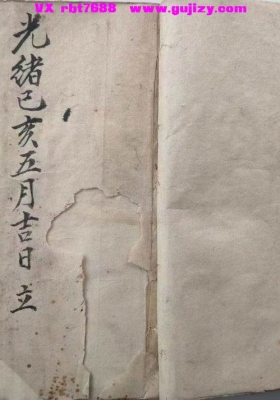 VX rbt7688 www.gujizy.com
光緒己亥五月吉日立